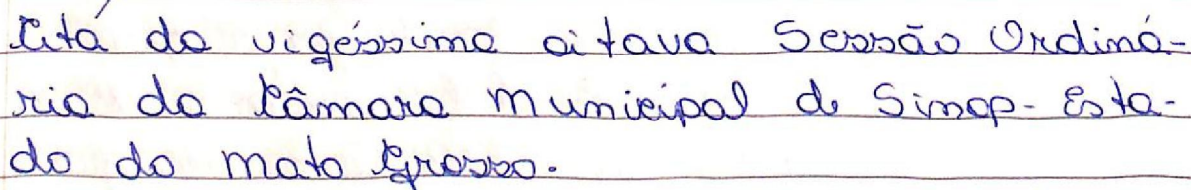 Ata da vigéssima oitava Sessão Ordiná-
ria da Câmara Municipal de Sinop - Esta-
do do Mato Grosso.